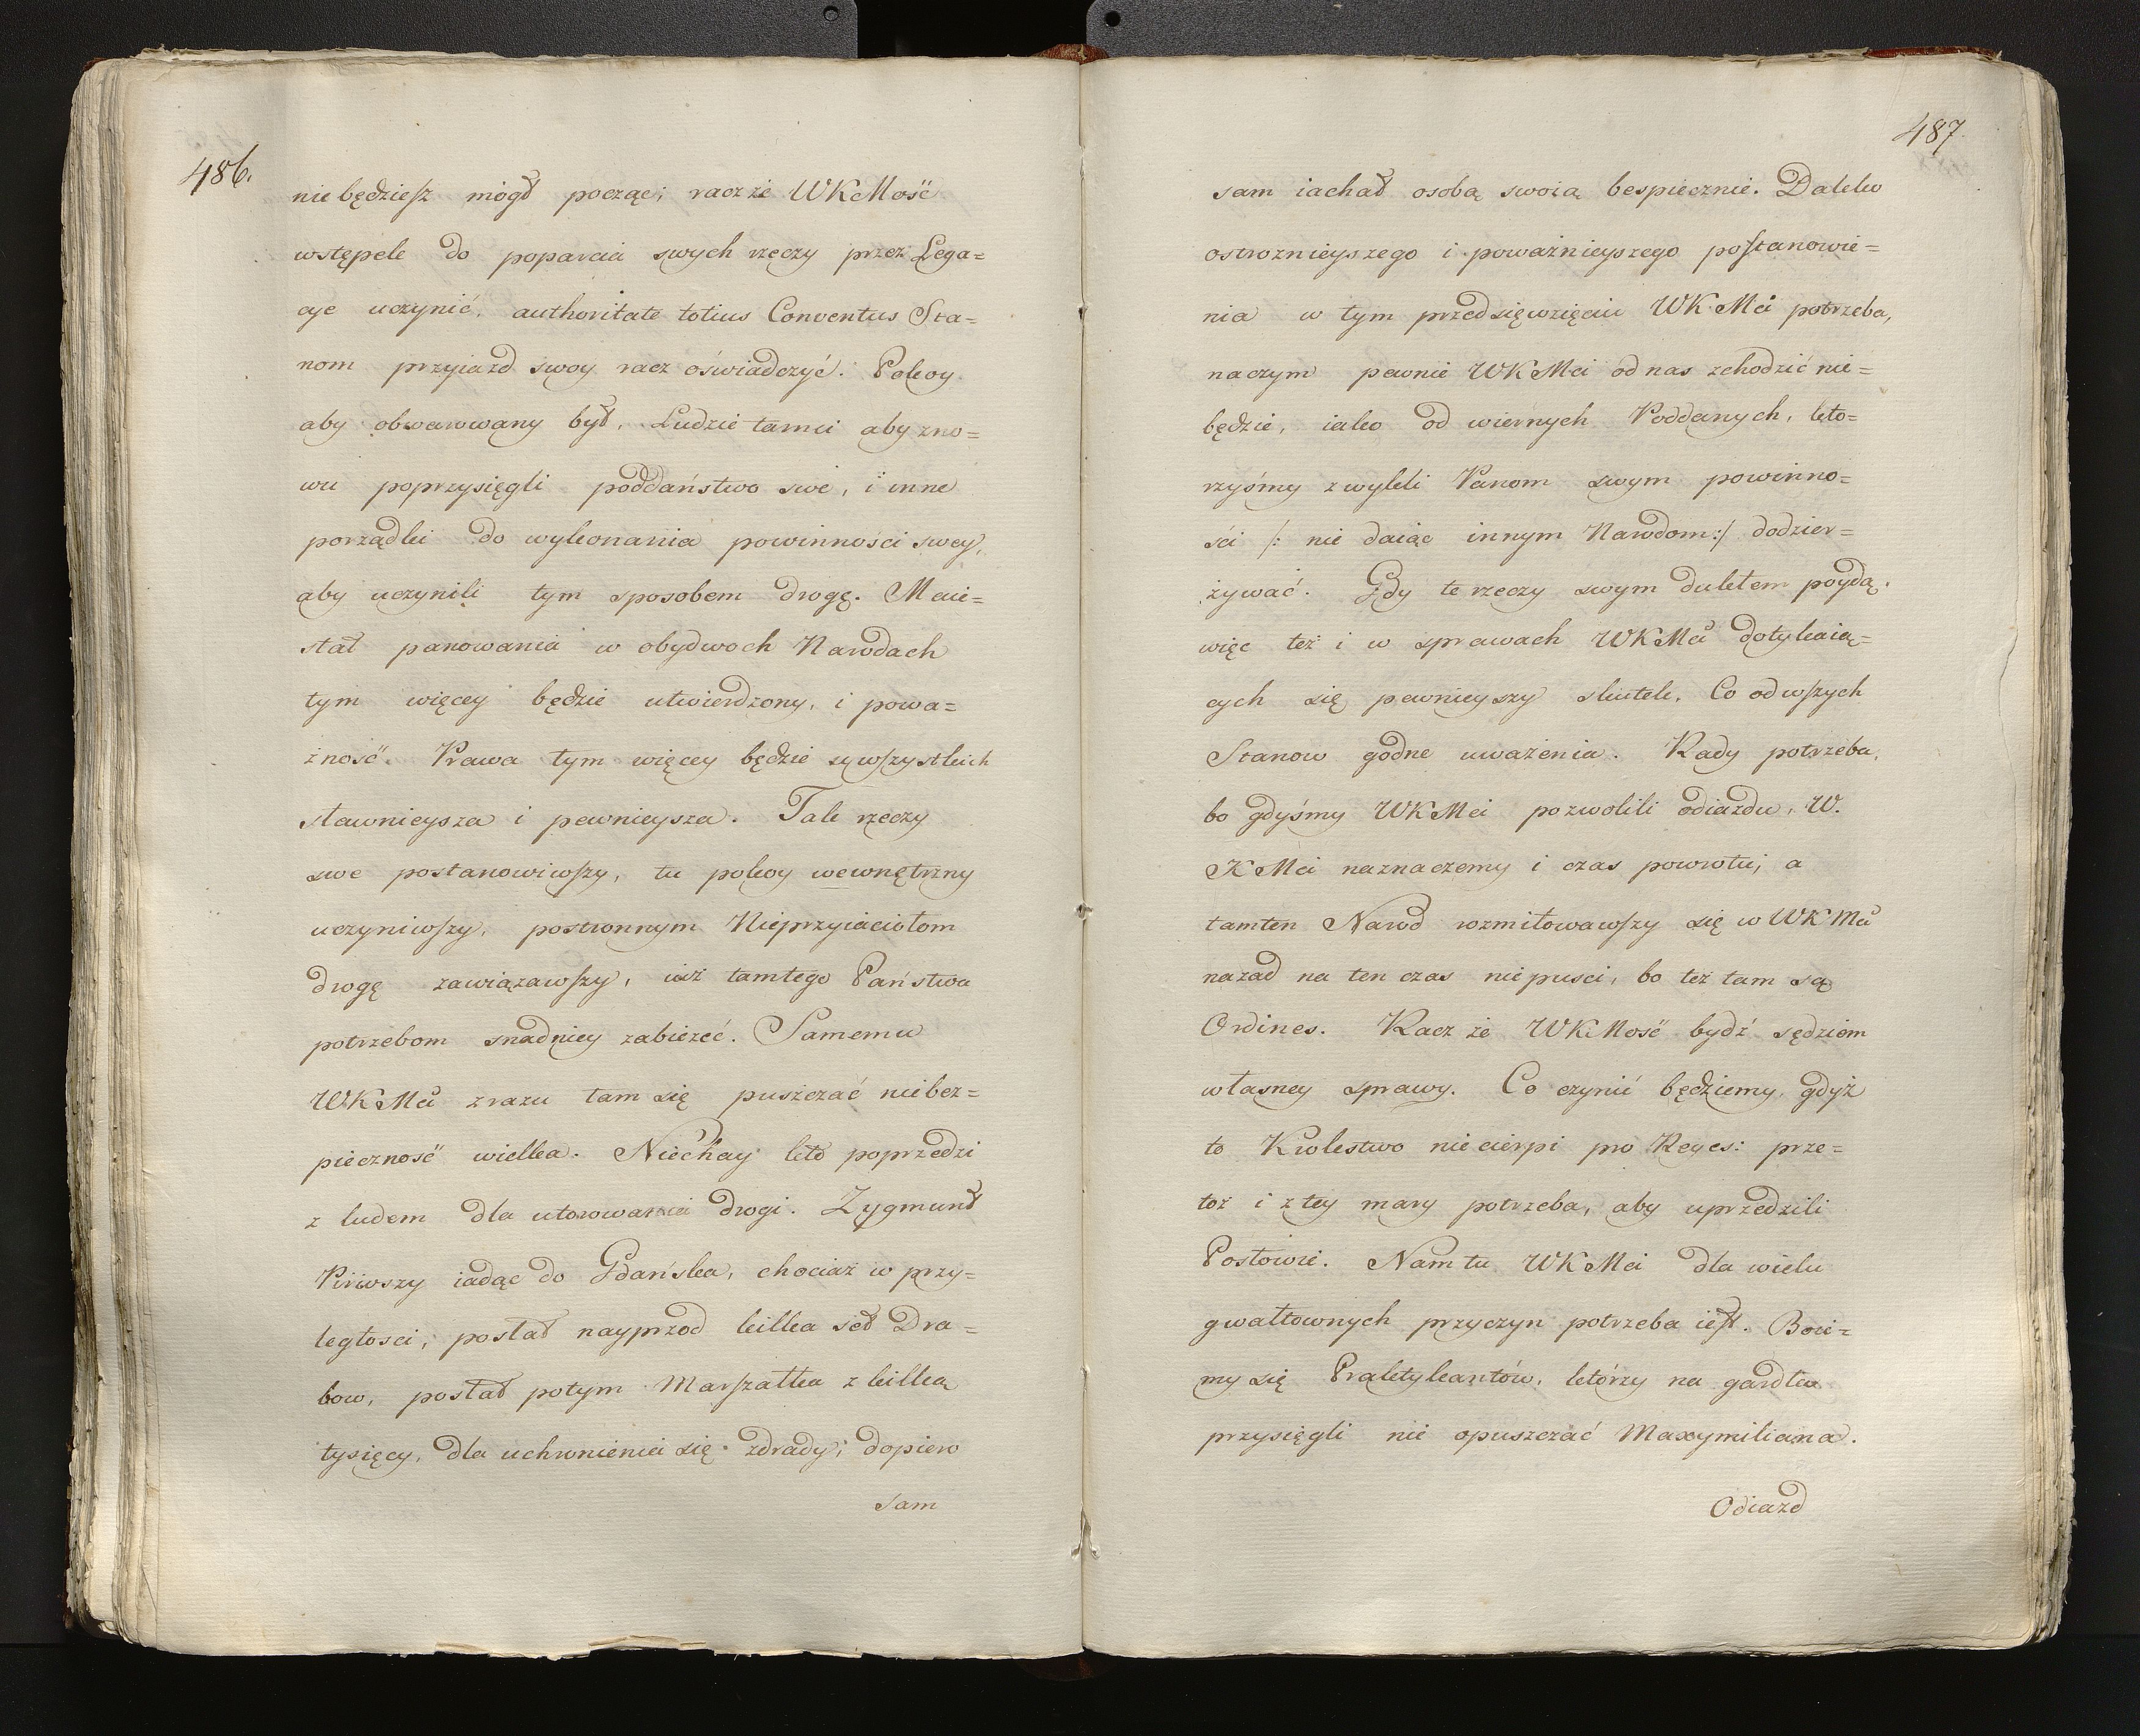 486.
nie będziesz mógł począć; racz że WKMość
wstępek do poparcia swych rzeczy przez Lega=
cye uczynić, authoritate totius Conventus Sta=
nom przyiazd swoy racz oświadczyć. Pokoy
aby obwarowany był, Ludzie tamci aby zno=
wu poprzysięgli poddaństwo swe, i inne
porządki do wykonania powinności swey,
aby uczynili tym sposobem drogę. Maie=
stat panowania w obydwoch Narodach
tym więcey będzie utwierdzony, i powa=
żność. Prawa tym więcey będzie u wszystkich
sławnieysza i pewnieysza. Tak rzeczy
swe postanowiwszy, tu pokoy wewnętrzny
uczyniwszy, postronnym Nieprzyiaciołom
drogę zawiązawszy, iuż tamtego Państwa
potrzebom snadniey zabieżeć. Samemu
WKMci zrazu tam się puszczać niebez=
pieczność wielka. Niechay kto poprzedzi
z ludem dla utorowania drogi. Zygmunt
Pirwszy iadąc do Gdańska, chociaż w przy=
ległosci, posłał nayprzod kilka set Dra=
bow, posłał potym Marszałka z kilką
tysięcy, dla uchronienia się zdrady; dopiero
sam
487.
sam iachał osobą swoią bespiecznie. Daleko
ostroznieyszego i poważnieyszego postanowie=
nia w tym przedsięwzięciu WKMci potrzeba,
na czym pewnie WKMci od nas zchodzić nie=
będzie, iako od wiernych Poddanych, kto=
rzyśmy zwykli Panom swym powinno=
ści /: nie daiąc innym Narodom:/ dodzier=
żywać. Gdy te rzeczy swym duktem poydą,
więc też i w sprawach WKMci dotykaią=
cych się pewnieyszy skutek. Co od wszych
Stanow godne uważenia. Rady potrzeba,
bo gdyśmy WKMci pozwolili odiazdu, W.
KMci naznaczemy i czas powrotu; a
tamten Narod rozmiłowawszy się w WKMci
nazad na ten czas nie pusci, bo też tam są
Ordines. Racz że WKMość bydź sędziem
własney sprawy. Co czynić będziemy, gdyż
to Krolestwo nie cierpi pro Reges: prze=
toż i z tey mary potrzeba, aby uprzedzili
Posłowie. Nam tu WKMci dla wielu
gwałtownych przyczyn potrzeba iest. Boei=
my się Praktykantów, którzy na gardła
przysięgli nie opuszczać Maxymiliana.
Odiazd